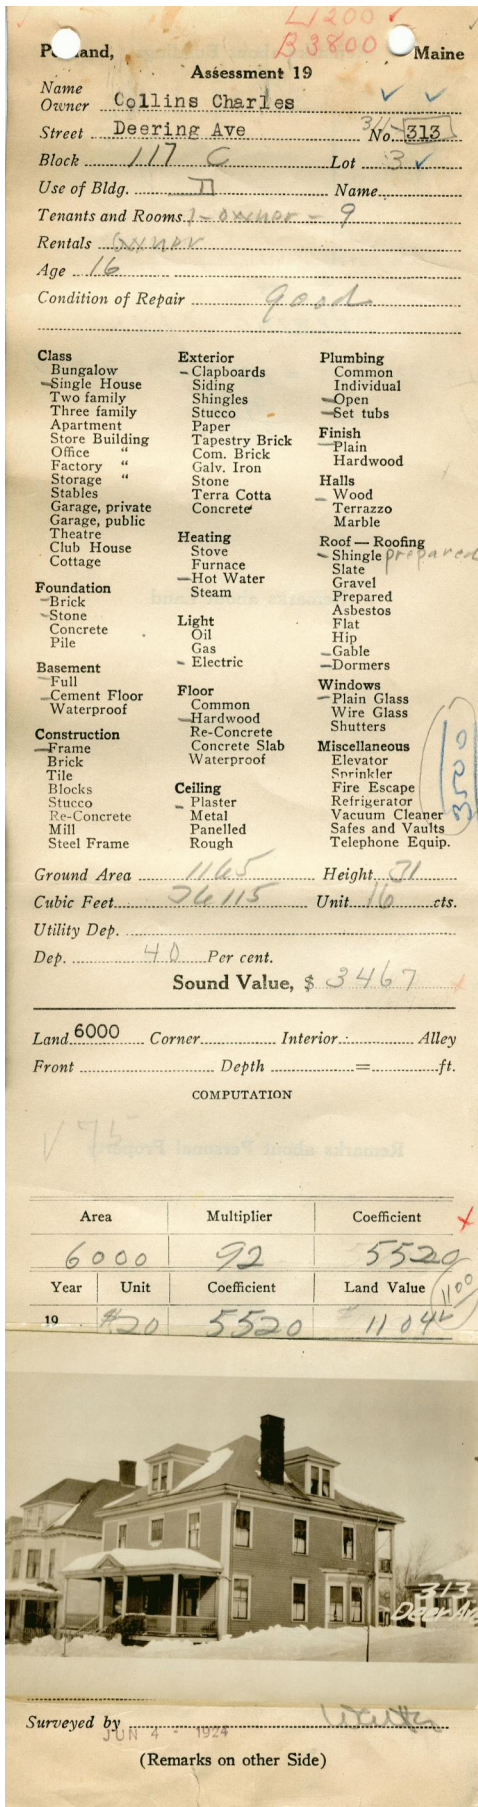 L 1200
B 3800
Portland, Maine
Assessment 19
Name
Owner Collins Charles
Street Deering Ave 311- No. 313
Block 117 C Lot 3
Use of Bldg. D Name
Tenants and Rooms 1-owner-9
Rentals owner
Age 16
Condition of Repair good
Class
Bungalow
Single House
Two family
Three family
Apartment
Store Building
Office "
Factory "
Storage "
Stables
Garage, private
Garage, public
Theatre
Club House
Cottage
Foundation
Brick
Stone
Concrete
Pile
Basement
Full
Cement Floor
Waterproof
Construction
Frame
Brick
Tile
Blocks
Stucco
Re-Concrete
Mill
Steel Frame
Exterior
Clapboards
Siding
Shingles
Stucco
Paper
Tapestry Brick
Com. Brick
Galv. Iron
Stone
Terra Cotta
Concrete
Heating
Stove
Furnace
Hot Water
Steam
Light
Oil
Gas
Electric
Floor
Common
Hardwood
Re-Concrete
Concrete Slab
Waterproof
Ceiling
Plaster
Metal
Panelled
Rough
Plumbing
Common
Individual
Open
Set tubs
Finish
Plain
Hardwood
Halls
Wood
Terrazzo
Marble
Roof — Roofing
Shingle prepared
Slate
Gravel
Prepared
Asbestos
Flat
Hip
Gable
Dormers
Windows
Plain Glass
Wire Glass
Shutters
Miscellaneous
Elevator
Sprinkler
Fire Escape
Refrigerator
Vacuum Cleaner
Safes and Vaults
Telephone Equip.
3500
Ground Area 1165 Height 31
Cubic Feet 36115 Unit 16 cts.
Utility Dep.
Dep. 40 Per cent.
Sound Value, $ 3467
Land 6000 Corner Interior Alley
Front Depth = ft.
COMPUTATION
Area Multiplier Coefficient
6000 92 5520
Year Unit Coefficient Land Value 1100
19 $20 5520 1104
313
Deer. Ave
Surveyed by
JUN 4 - 1924
(Remarks on other Side)